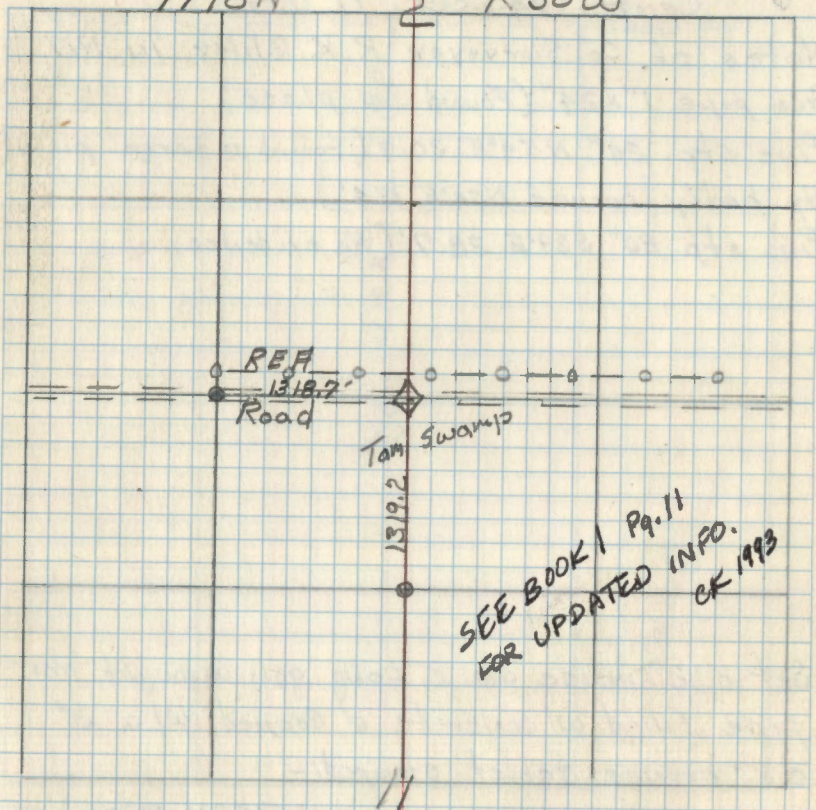 2
REA
1318.7'
Road
Tam Swamp
1319.2
SEE BOOK 1 Pg. 11
FOR UPDATED INFO.
CK 1993
11